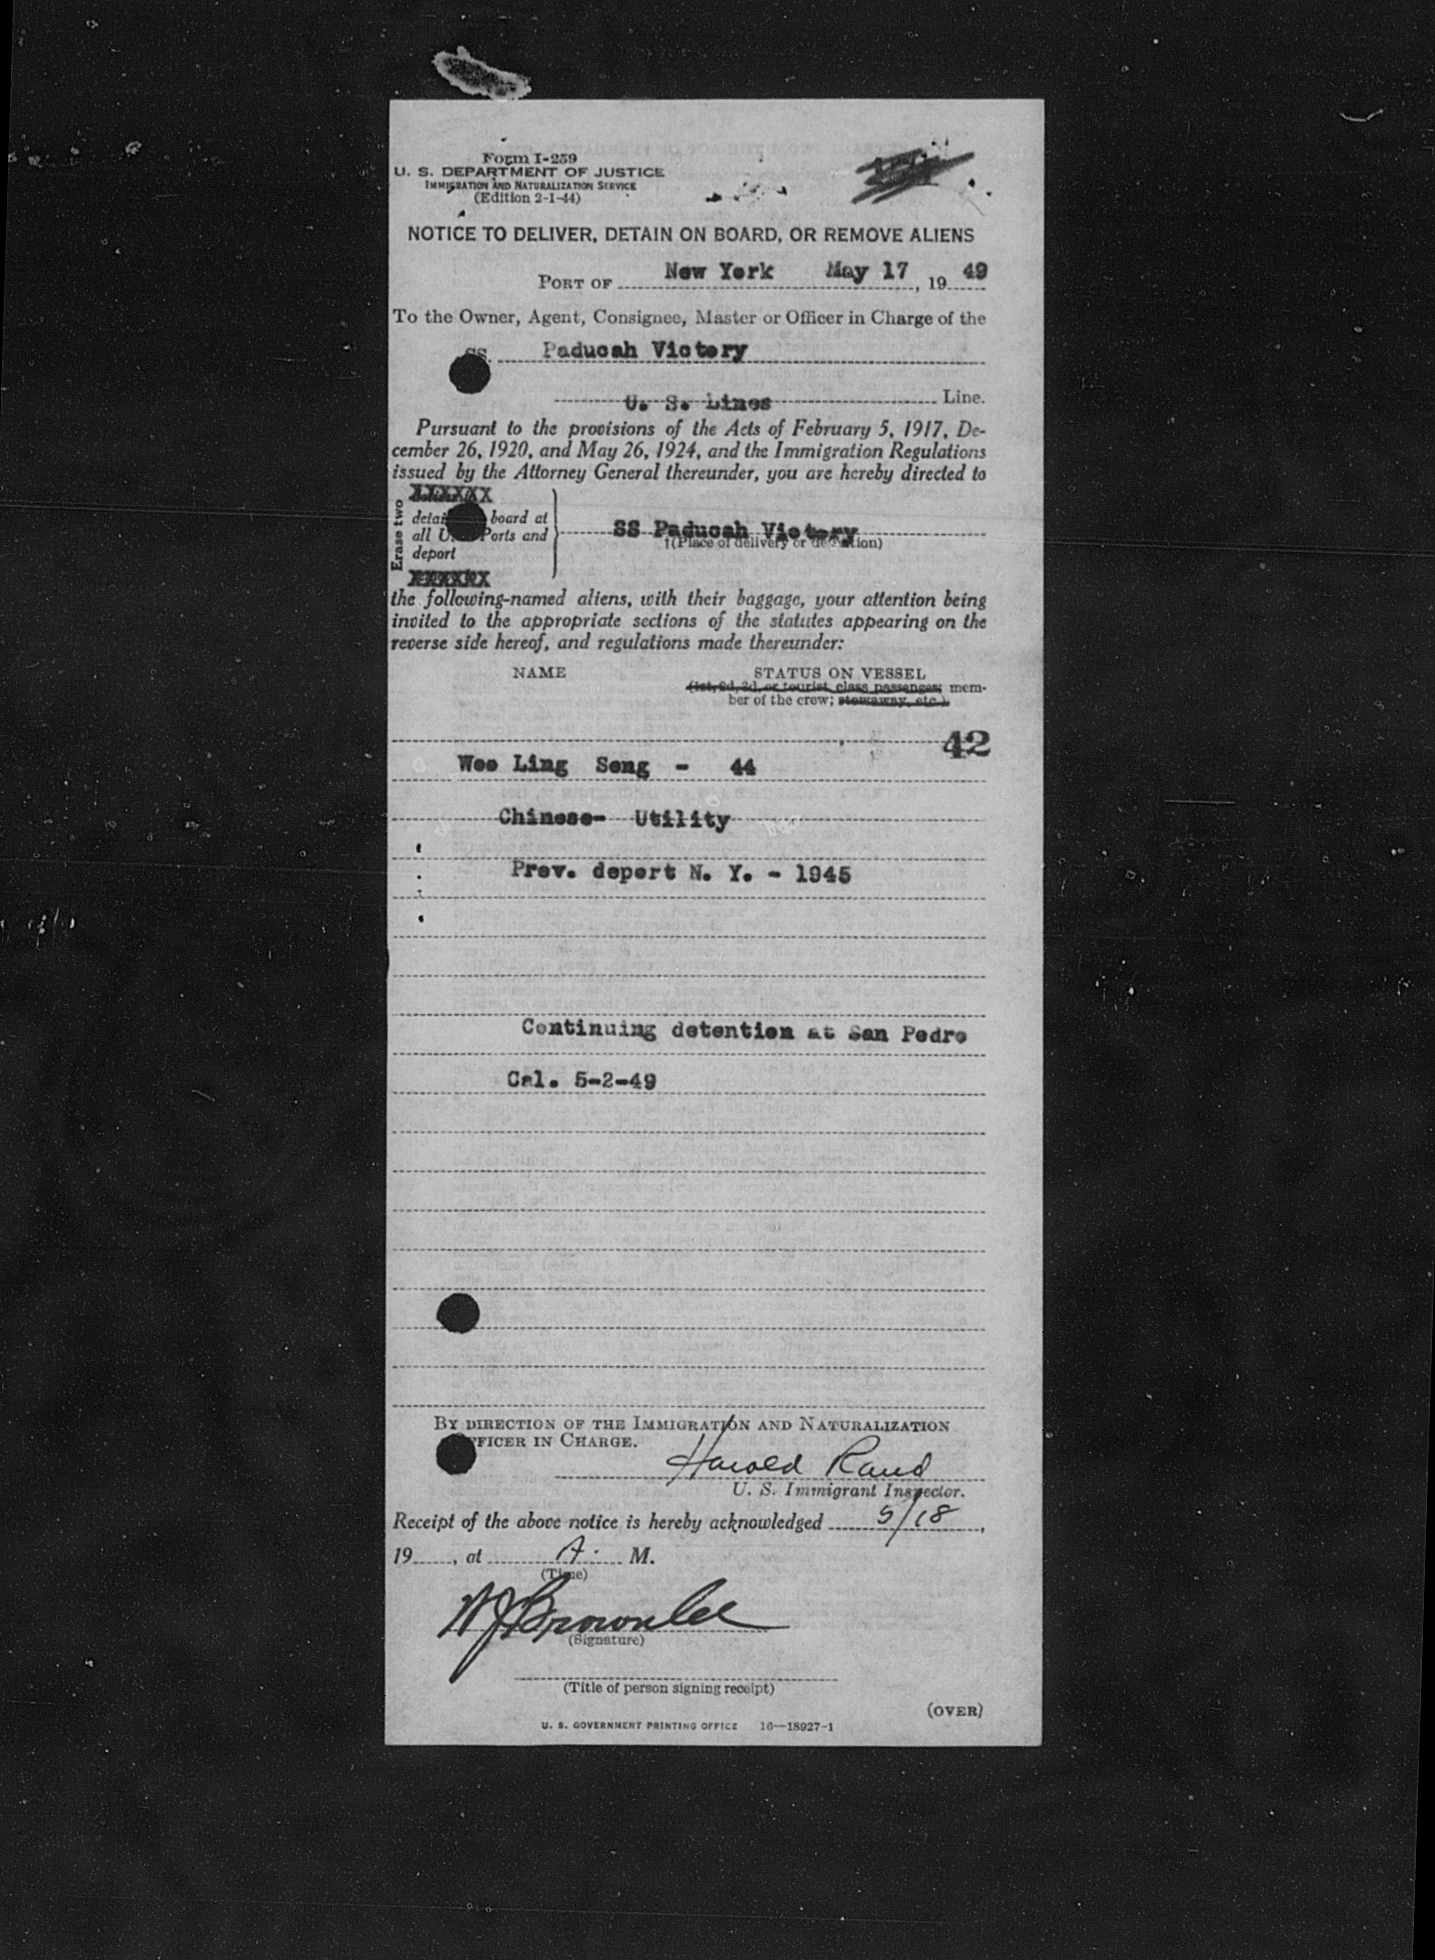 Form I-259
U. S. DEPARTMENT OF JUSTICE
IMMIGRATION AND NATURALIZATION SERVICE
(Edition 2-1-44)
NOTICE TO DELIVER, DETAIN ON BOARD, OR REMOVE ALIENS
PORT OF New York May 17, 19 49
To the Owner, Agent, Consignee, Master or Officer in Charge of the
SS. Paducah Victory
U. S. Lines Line.
Pursuant to the provisions of the Acts of February 5, 1917, De-
cember 26, 1920, and May 26, 1924, and the Immigration Regulations
issued by the Attorney General thereunder, you are hereby directed to
Erase two
XXXXXX
detai board at
all U. Ports and
deport
XXXXXX
SS Paducah Victory
†(Place of delivery or detention)
the following-named aliens, with their baggage, your attention being
invited to the appropriate sections of the statutes appearing on the
reverse side hereof, and regulations made thereunder:
NAME STATUS ON VESSEL
(1st, 2d, 3d, or tourist class passenger; mem-
ber of the crew; stowaway, etc.)
42
Woo Ling Seng - 44
Chinese- Utility
Prev. deport N. Y. - 1945
Continuing detention at San Pedro
Cal. 5-2-49
BY DIRECTION OF THE IMMIGRATION AND NATURALIZATION
FFICER IN CHARGE.
Harold Rand
U. S. Immigrant Inspector.
Receipt of the above notice is hereby acknowledged 5/18,
19, at A. M.
(Time)
W J Brownlee
(Signature)
(Title of person signing receipt)
(OVER)
U. S. GOVERNMENT PRINTING OFFICE 16—18927-1